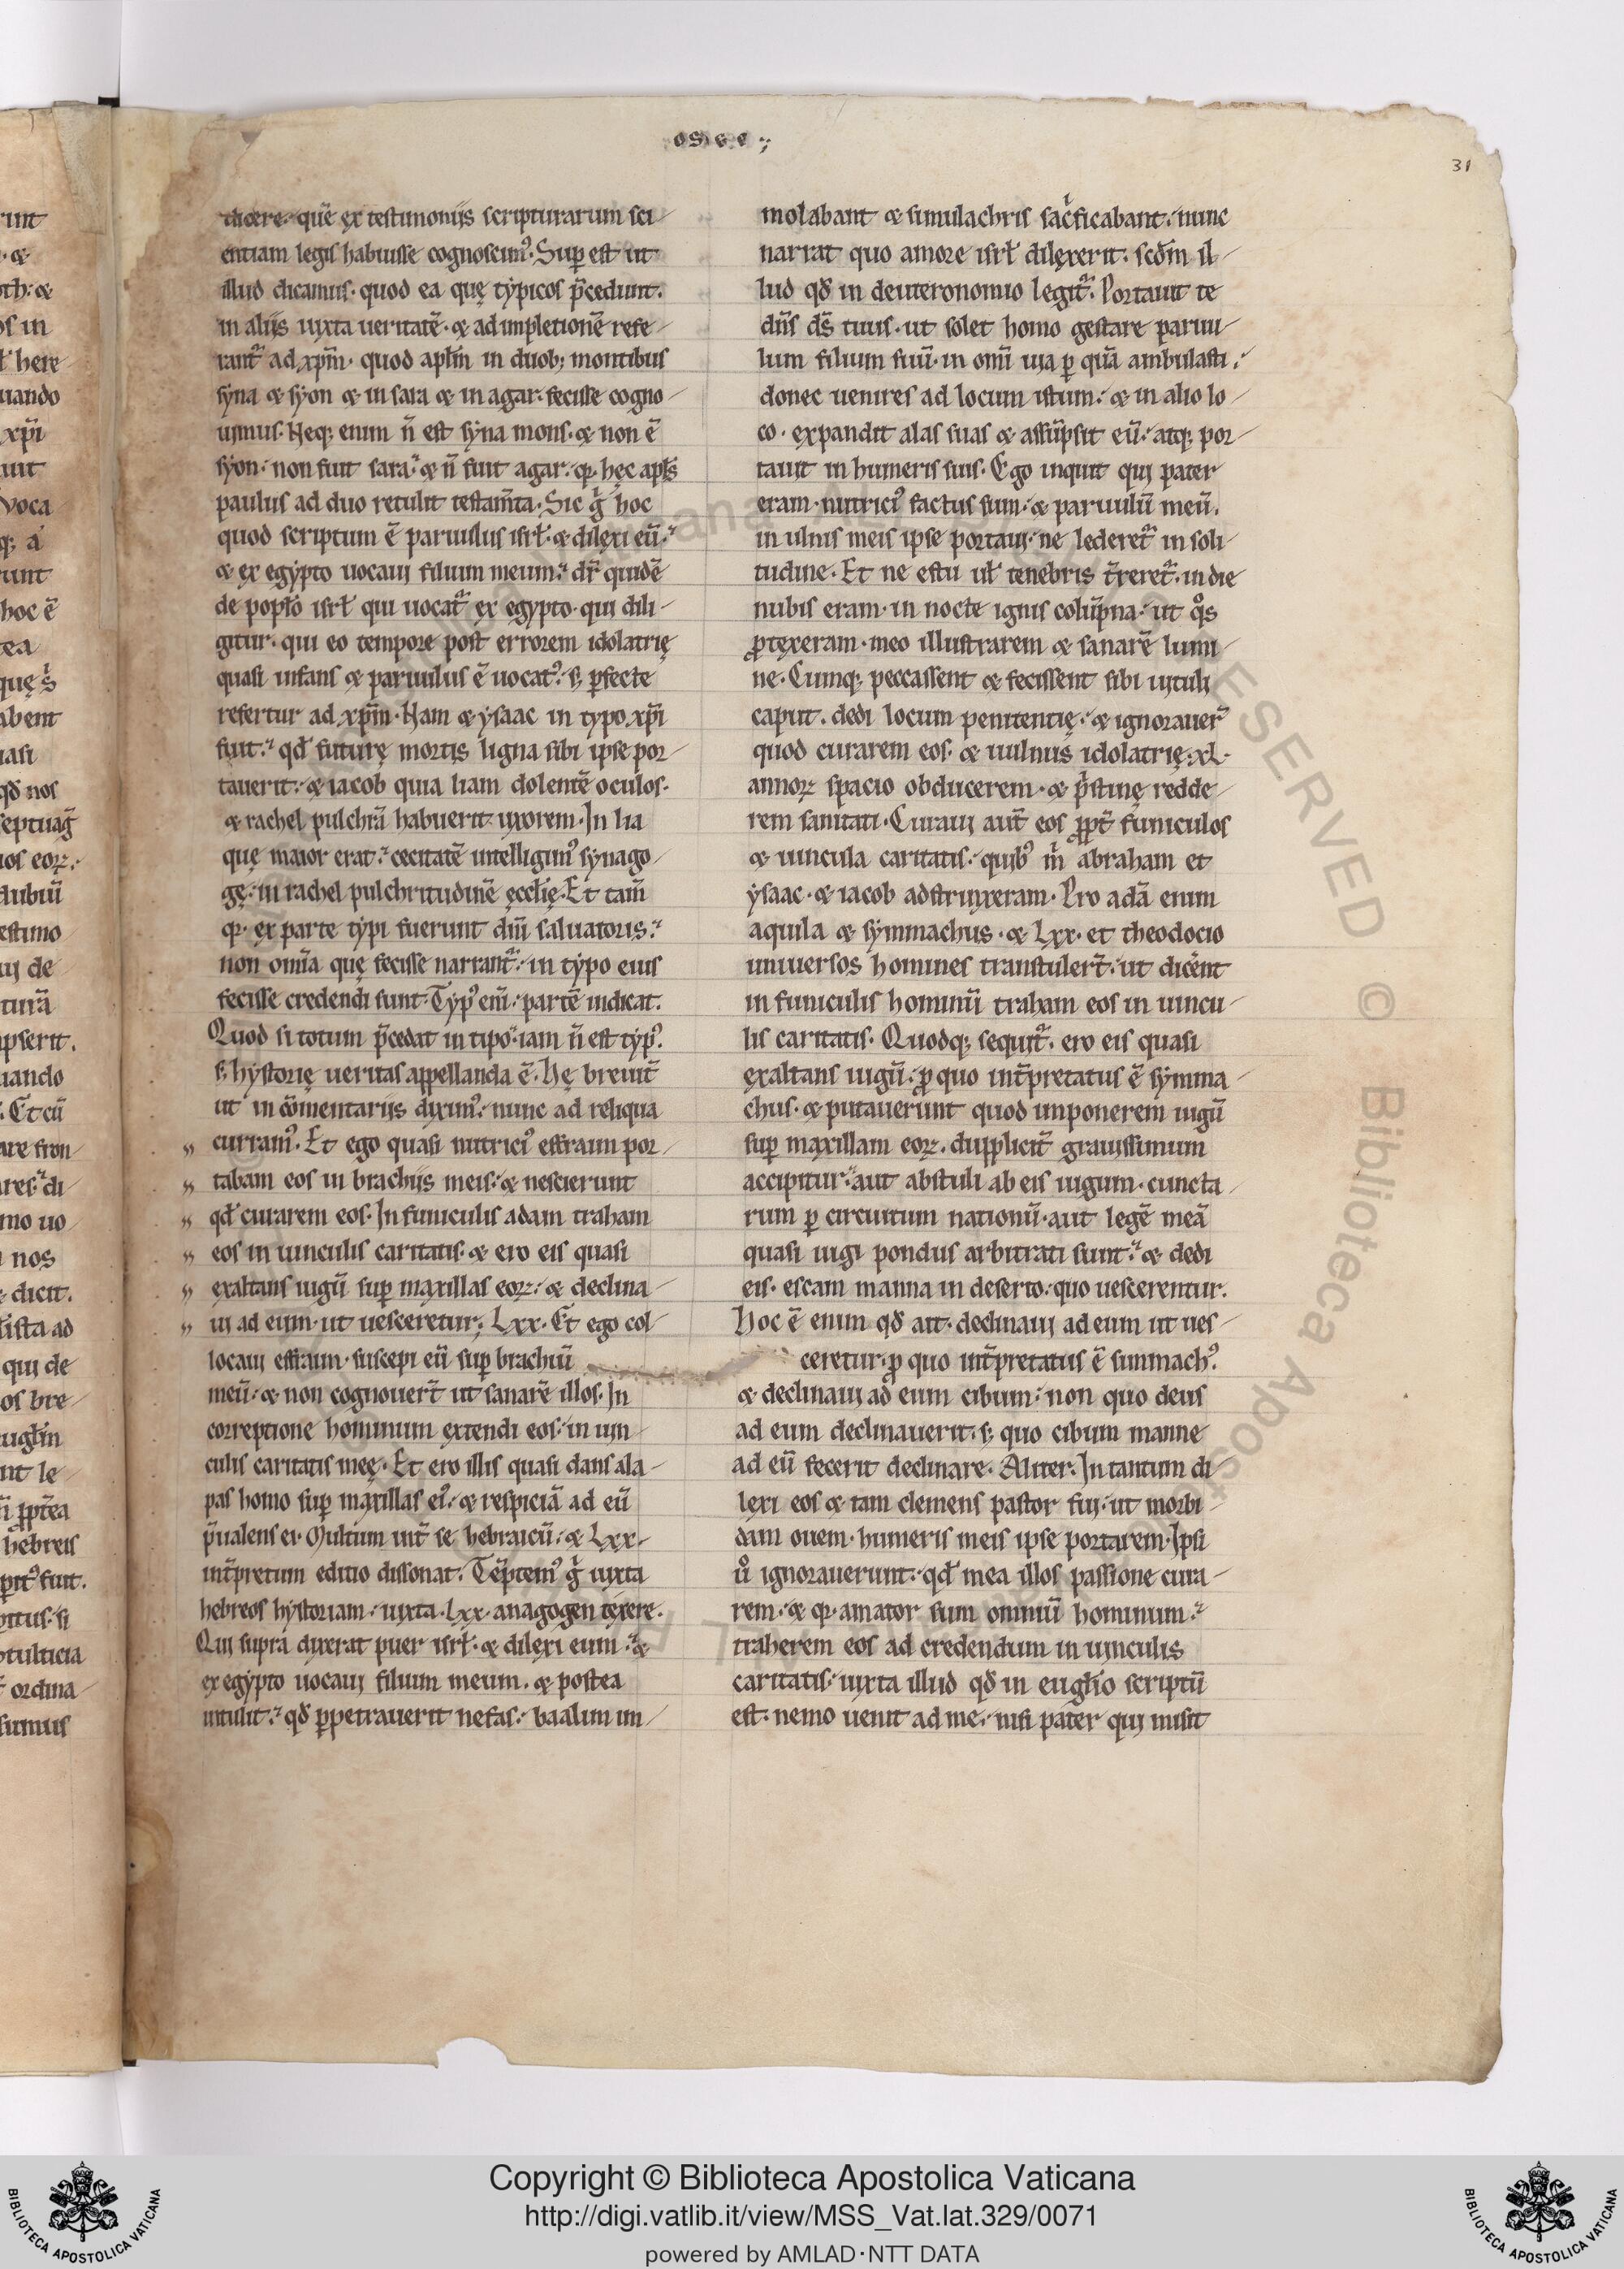 osee ;
31
dicere. quē ex testimoniis scripturarum sci-
entiam legis habuisse cognoscim᾽. Sup est ut
illud dicamus. quod ea quę typicos p̄cedunt.
in aliis iuxta ueritatē. & ad impletionē refe-
rant᷑ ad xpm̄. quod aplm̄ in duob; montibus
syna & syon & in sara & in agar. fecisse cogno-
uimus. Neq; enim n̄ est syna mons. & non ē
syon. non fuit sara. & n̄ fuit agar. q. hęc apls̄
paulus ad duo retulit testam̄ta. Sic g̊ hoc
quod scriptum ē paruulus isrł. & dilexi eū.
& ex egypto uocaui filium meum. dr̄ quidē
de popło isrł qui uocat᷑ ex egypto. qui dili-
gitur. qui eo tempore post errorem idolatrię
quasi infans & paruulus ē uocat᾽. s; pfecte
refertur ad xpm̄. Nam & ysaac in typo xpi̅
fuit. qđ futurę mortis ligna sibi ipse por-
tauerit. & iacob quia liam dolentē oculos.
& rachel pulchrā habuerit uxorem. In lia
quę maior erat. cecitatē intelligim᾽ synago-
gę. in rachel pulchritudinē ęcclię. Et tam̄
q. ex parte typi fuerunt dn̄i saluatoris.
non om̄ia quę fecisse narrant᷑. in typo eius
fecisse credendi sunt. Typ᾽ em̄. partē indicat.
Quod si totum p̄cedat in tipo. iam n̄ est typ᾽.
s; hystorię ueritas appellanda ē. Hę breuit̄
ut in cōmentariis dixim᾽. nunc ad reliqua
curram᾽. Et ego quasi nutrici᾽ effraim por-
tabam eos in brachiis meis. & nescierunt
qđ curarem eos. In funiculis adam traham
eos in uinculis caritatis. & ero eis quasi
exaltans iugū sup maxillas eoꝝ. & declina-
ui ad eum. ut uesceretur; Lxx. Et ego col-
locaui effraim. suscepi eū sup brachiū
meū. & non cognouer̄t ut sanarē illos. In
correptione hominum extendi eos. in uin-
culis caritatis meę. Et ero illis quasi dans ala-
pas homo sup maxillas ei᾽. & respiciā ad eū
p̄ualens ei. Multum int̄ se hebraicū. & Lxx.
int̄pretum editio dissonat. Tēptem᾽ g̊ iuxta
hebreos hystoriam. iuxta. Lxx. anagogen texere.
Qui supra dixerat puer isrł. & dilexi eum. &
ex egypto uocaui filium meum. & postea
intulit. qđ ppetrauerit nefas. baalim im-
molabant & simulachris sac̄ficabant. nunc
narrat quo amore isrł dilexerit. scđm il-
lud qđ in deuteronomio legit᷑. Portauit te
dn̄s ds̄ tuus. ut solet homo gestare paruu-
lum filium suū. in omī uia p quā ambulasti.
donec uenires ad locum istum. & in alio lo-
co. expandit alas suas & assūpsit eū. atq; por-
tauit in humeris suis. Ego inquit qui pater
eram. nutrici᾽ factus sum. & paruulū meū.
in ulnis meis ipse portaui. ne lederet᷑ in soli-
tudine. Et ne estu uł tenebris t̄reret᷑. in die
nubis eram. in nocte ignis colūpna. ut q̊s
ptexeram. meo illustrarem & sanarē lumi-
ne. Cumq; peccassent & fecissent sibi uituli
caput. dedi locum penitentię. & ignorauer̄
quod curarem eos. & uulnus idolatrię. xl.
annoꝝ spacio obducerem. & p̄stinę redde-
rem sanitati. Curaui aut̄ eos ppt̄ funiculos
& uincula caritatis. quib᾽ m̄ abraham et
ysaac. & iacob adstrinxeram. Pro adā enim
aquila & symmachus. & Lxx. et theodocio
uniuersos homines transtuler̄t. ut dicēnt
in funiculis hominū traham eos in uincu-
lis caritatis. Quodq; sequit᷑. ero eis quasi
exaltans iugū. p quo int̄pretatus ē symma-
chus. & putauerunt quod imponerem iugū
sup maxillam eoꝝ. dupplicit̄ grauissimum
accipitur. aut abstuli ab eis iugum. cuncta-
rum p circuitum nationū. aut legē meā
quasi iugi pondus arbitrati sunt. & dedi
eis. escam manna in deserto. quo uescerentur.
Hoc ē enim qđ ait. declinaui ad eum ut ues-
ceretur. p quo int̄pretatus ē simmach᾽.
& declinaui ad eum cibum. non quo deus
ad eum declinauerit. s; quo cibum manne
ad eū fecerit declinare. Aliter. In tantum di-
lexi eos & tam clemens pastor fui. ut morbi-
dam ouem. humeris meis ipse portarem. Ipsi
ů ignorauerunt. qđ mea illos passione cura-
rem. & q. amator sum omniū hominum.
traherem eos ad credendum in uinculis
caritatis. iuxta illud qđ in euglio scriptū
est. nemo uenit ad me. nisi pater qui misit
Copyright © Biblioteca Apostolica Vaticana
http://digi.vatlib.it/view/MSS_Vat.lat.329/0071
powered by AMLAD·NTT DATA